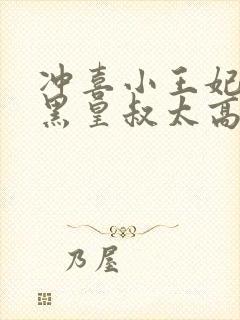 冲喜小王妃
黑皇叔太高
乃屋